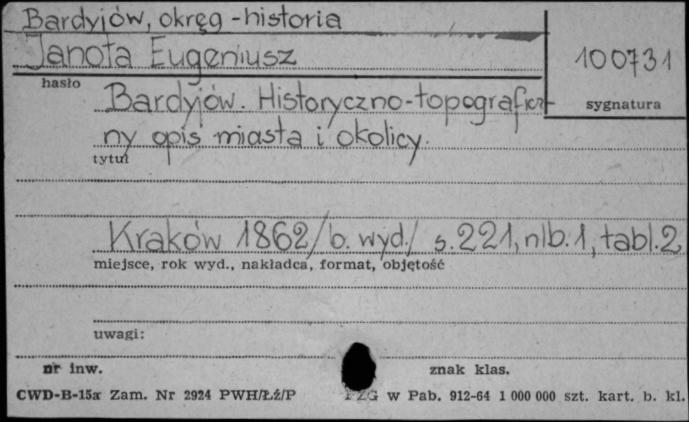 Bardyjów, okręg - historia
Janota Eugeniusz
100731
hasło
sygnatura
Bardyjów. Historyczno-topograficz-
ny opis miasta i okolicy.
tytuł
Kraków 1862 /b. wyd./ s. 221, nlb. 1, tabl. 2,
miejsce, rok wyd., nakładca, format, objętość
uwagi:
nr inw.
znak klas.
CWD-B-15a Zam. Nr 2924 PWH/Łź/P
PZG w Pab. 912-64 1 000 000 szt. kart. b. kl.